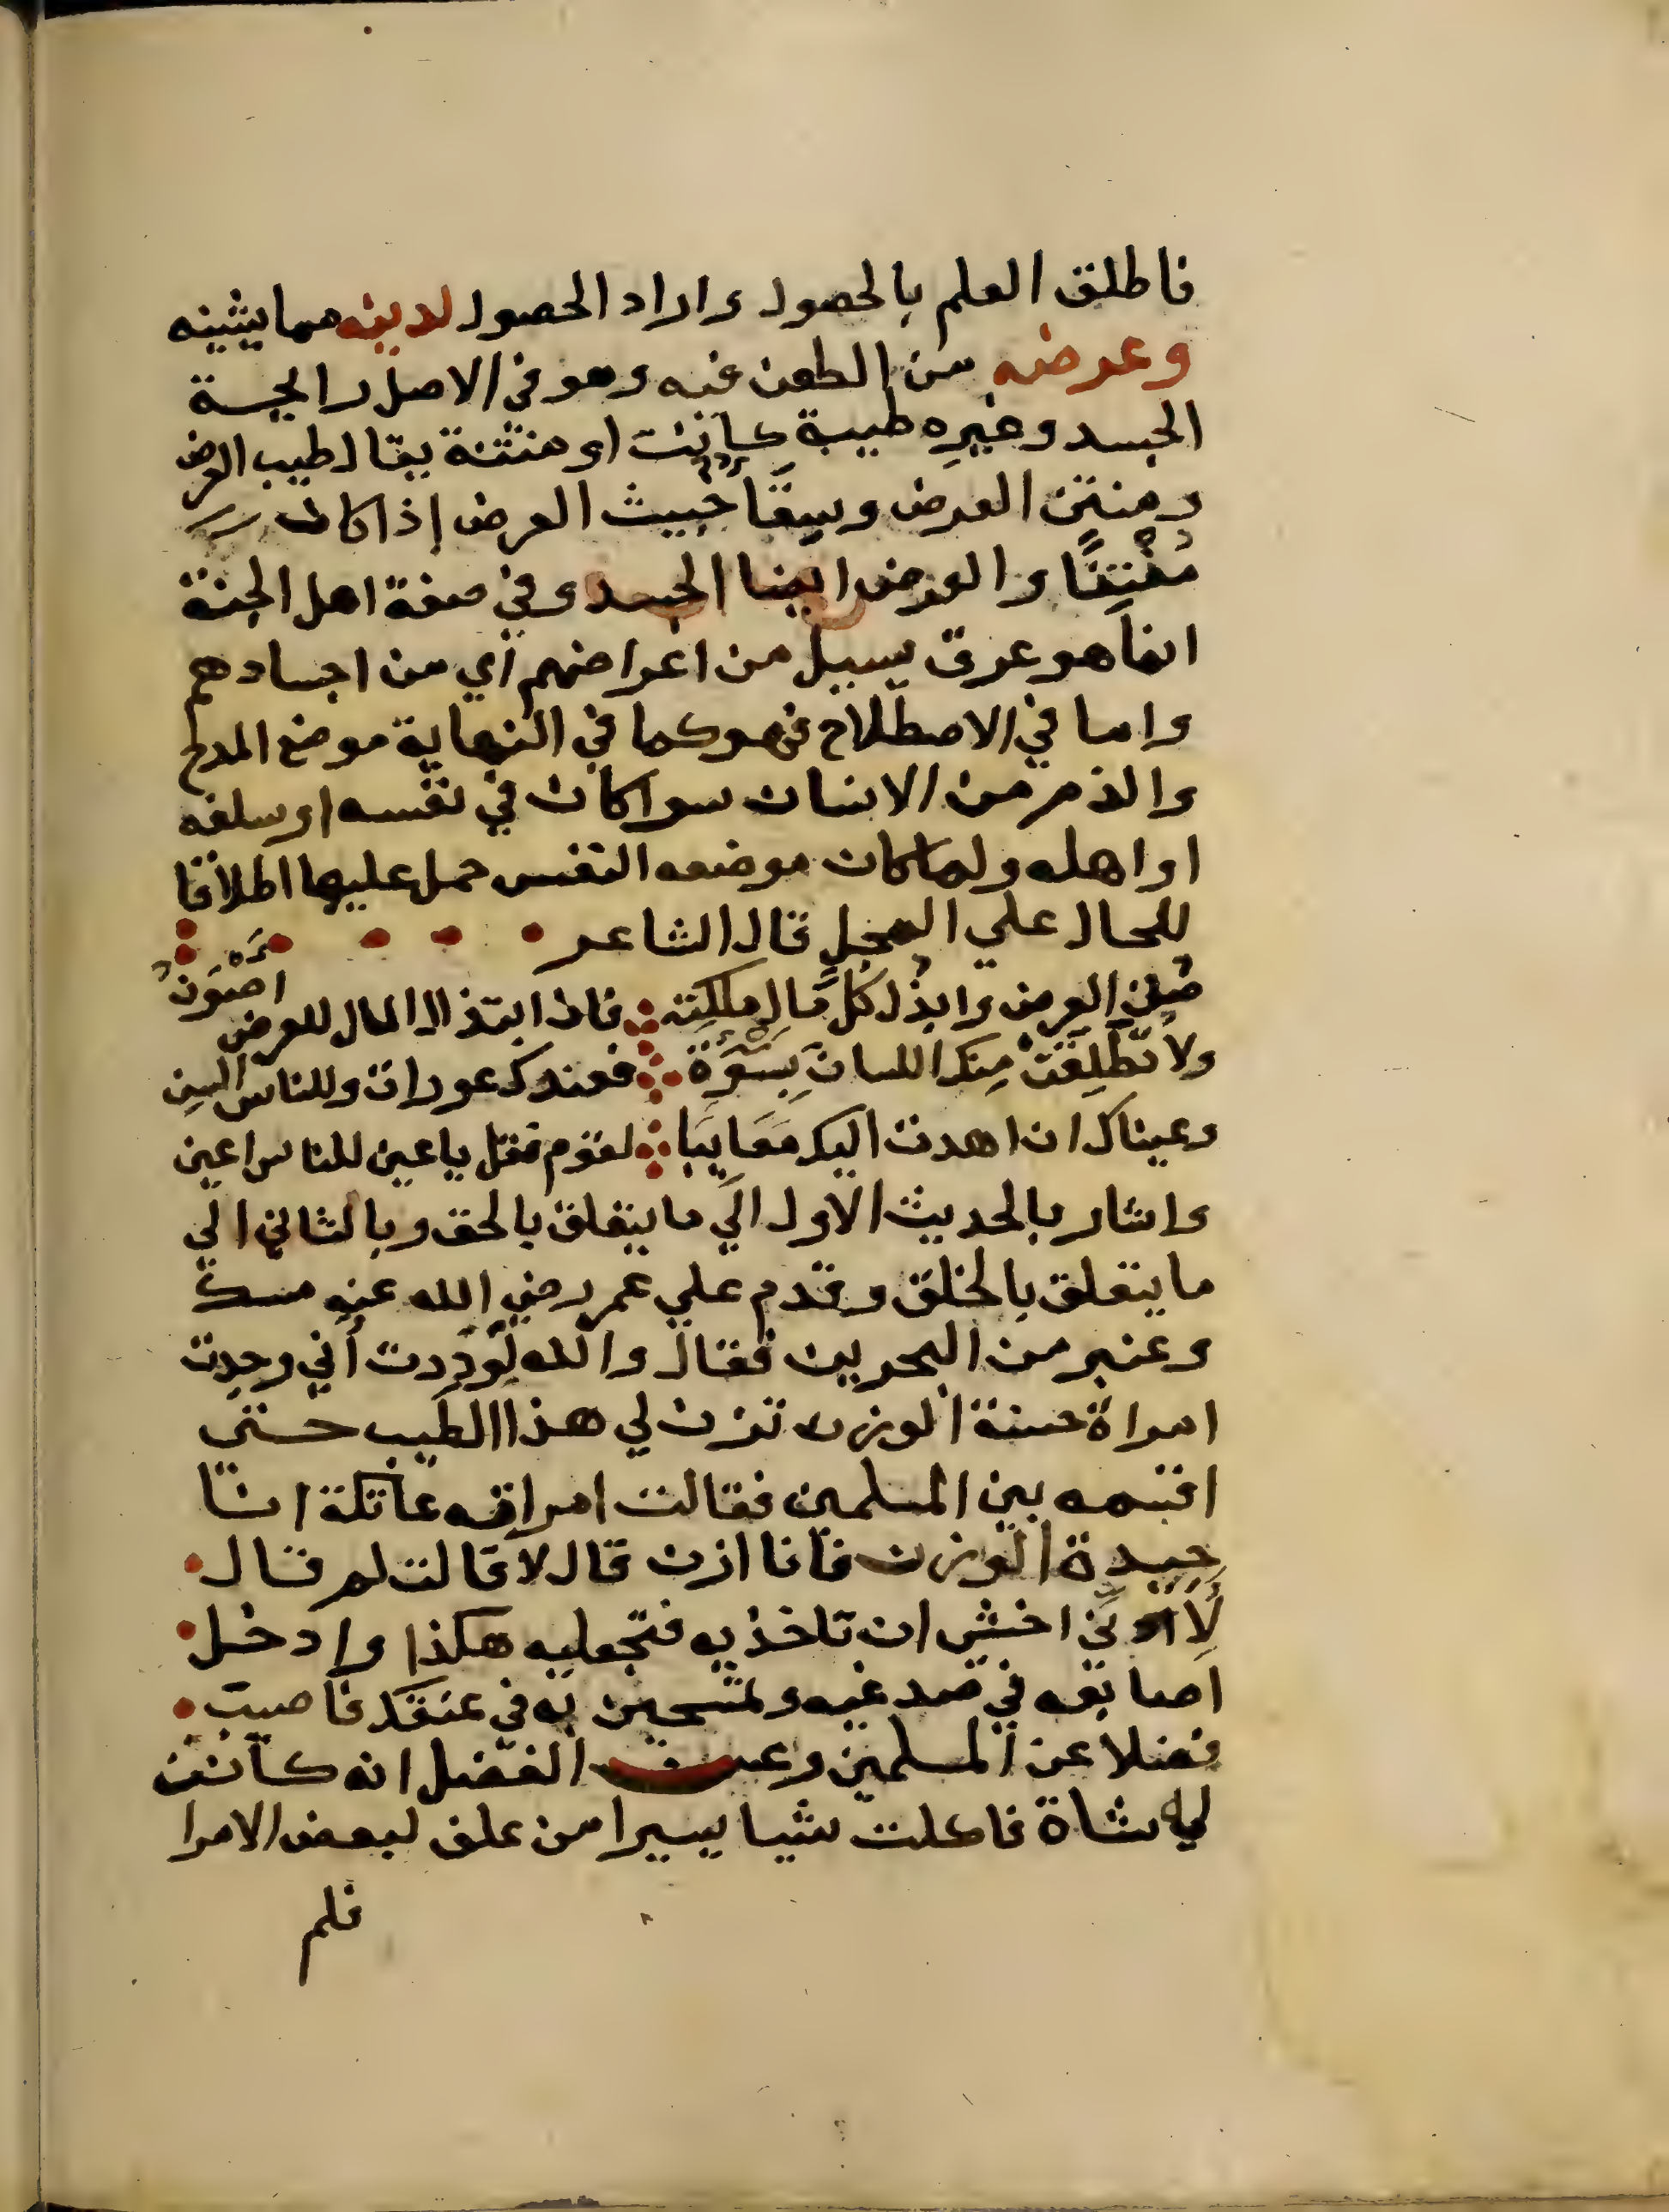 فاطلق العلم بالحصول واراد الحصول لدينه مما يشينه
وعرضه من الطعن فيه وهو في الاصل رايحة
الجسد وغيره طيبة كانت او منتنة يقال طيب العرض
ومنتن العرض وسقاً خبيث العرض إذا كان
مُنْتِنًا والعرض ايضا الجسد وفي صفة اهل الجنة
انما هو عرق يسيل من اعراضهم أي من اجسادهم
واما في الاصطلاح فهو كما في النهاية موضع المدح
والذم من الانسان سوا كان في نفسه او سلفه
او اهله ولما كان موضعه النفس حمل عليها اطلاقا
للحال علي المحل قال الشاعر
صُن العرض وابذُل كلَّ مال ملكته فان ابتذال المال للعرض اصْوَنُ
ولا تُطلِقَنْ منك اللسان بِسَوْءَةٍ فعندك عورات وللناس السن
وعيناك ان اهدت اليك مَعَايِبَا لقوم فقل يا عين للناس اعين
واشار بالحديث الاول الي ما يتعلق بالحق وبالثاني الي
ما يتعلق بالخلق وقدم علي عمر رضي الله عنه مسك
وعنبر من البحرين فقال والله لَوَدِدت أني وجدت
امراة حسنة الوزن تزن لي هذا الطيب حتي
اقسمه بين المسلمين فقالت امراته عاتكة انا
جيدة الوزن فانا ازن قال لا قالت لم قال
لِأَنّي اخشي ان تاخذيه فتجعليه هكذا وادخل
اصابعه في صدغيه وتمسحين به في عنقك فاصيب
فضلا عن المسلمين وعن الفضل انه كانت
له شاة فاكلت شيا يسيرا من علف لبعض الامرا
فلم